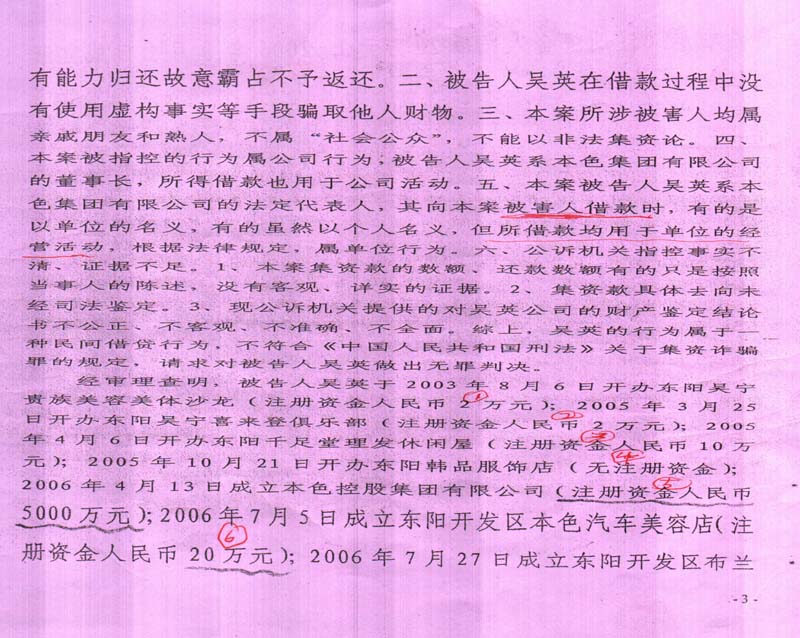 有能力归还故意霸占不予返还。二、被告人吴英在借款过程中没
有使用虚构事实等手段骗取他人财物。三、本案所涉被害人均属
亲戚朋友和熟人，不属“社会公众”，不能以非法集资论。四、
本案被指控的行为属公司行为，被告人吴英系本色集团有限公司
的董事长，所得借款也用于公司活动。五、本案被告人吴英系本
色集团有限公司的法定代表人，其向本案被害人借款时，有的是
以单位的名义，有的虽然以个人名义，但所借款均用于单位的经
营活动，根据法律规定，属单位行为。六、公诉机关指控事实不
清、证据不足。1、本案集资款的数额、还款数额有的只是按照
当事人的陈述，没有客观、详实的证据。2、集资款具体去向未
经司法鉴定。3、现公诉机关提供的对吴英公司的财产鉴定结论
书不公正、不客观、不准确、不全面。综上，吴英的行为属于一
种民间借贷行为，不符合《中国人民共和国刑法》关于集资诈骗
罪的规定，请求对被告人吴英做出无罪判决。
经审理查明，被告人吴英于 2003 年 8 月 6 日开办东阳吴宁
贵族美容美体沙龙（注册资金人民币 2 万元）；2005 年 3 月 25
日开办东阳吴宁喜来登俱乐部（注册资金人民币 2 万元）；2005
年 4 月 6 日开办东阳千足堂理发休闲屋（注册资金人民币 10 万
元）；2005 年 10 月 21 日开办东阳韩品服饰店（无注册资金）；
2006 年 4 月 13 日成立本色控股集团有限公司（注册资金人民币
5000 万元）；2006 年 7 月 5 日成立东阳开发区本色汽车美容店（注
册资金人民币 20 万元）；2006 年 7 月 27 日成立东阳开发区布兰
①
②
③
④
⑤
⑥
- 3 -